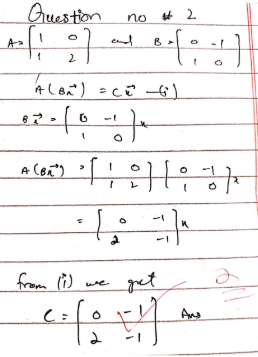 Question no # 2
A = [1 0; 1 2] and B = [0 -1; 1 0]
A(Bx⃗) = Cx⃗ —(i)
Bx⃗ = [0 -1; 1 0] x
A(Bx⃗) = [1 0; 1 2] [0 -1; 1 0] x
= [0 -1; 2 -1] x
from (i) we get
C = [0 -1; 2 -1] Ans
2